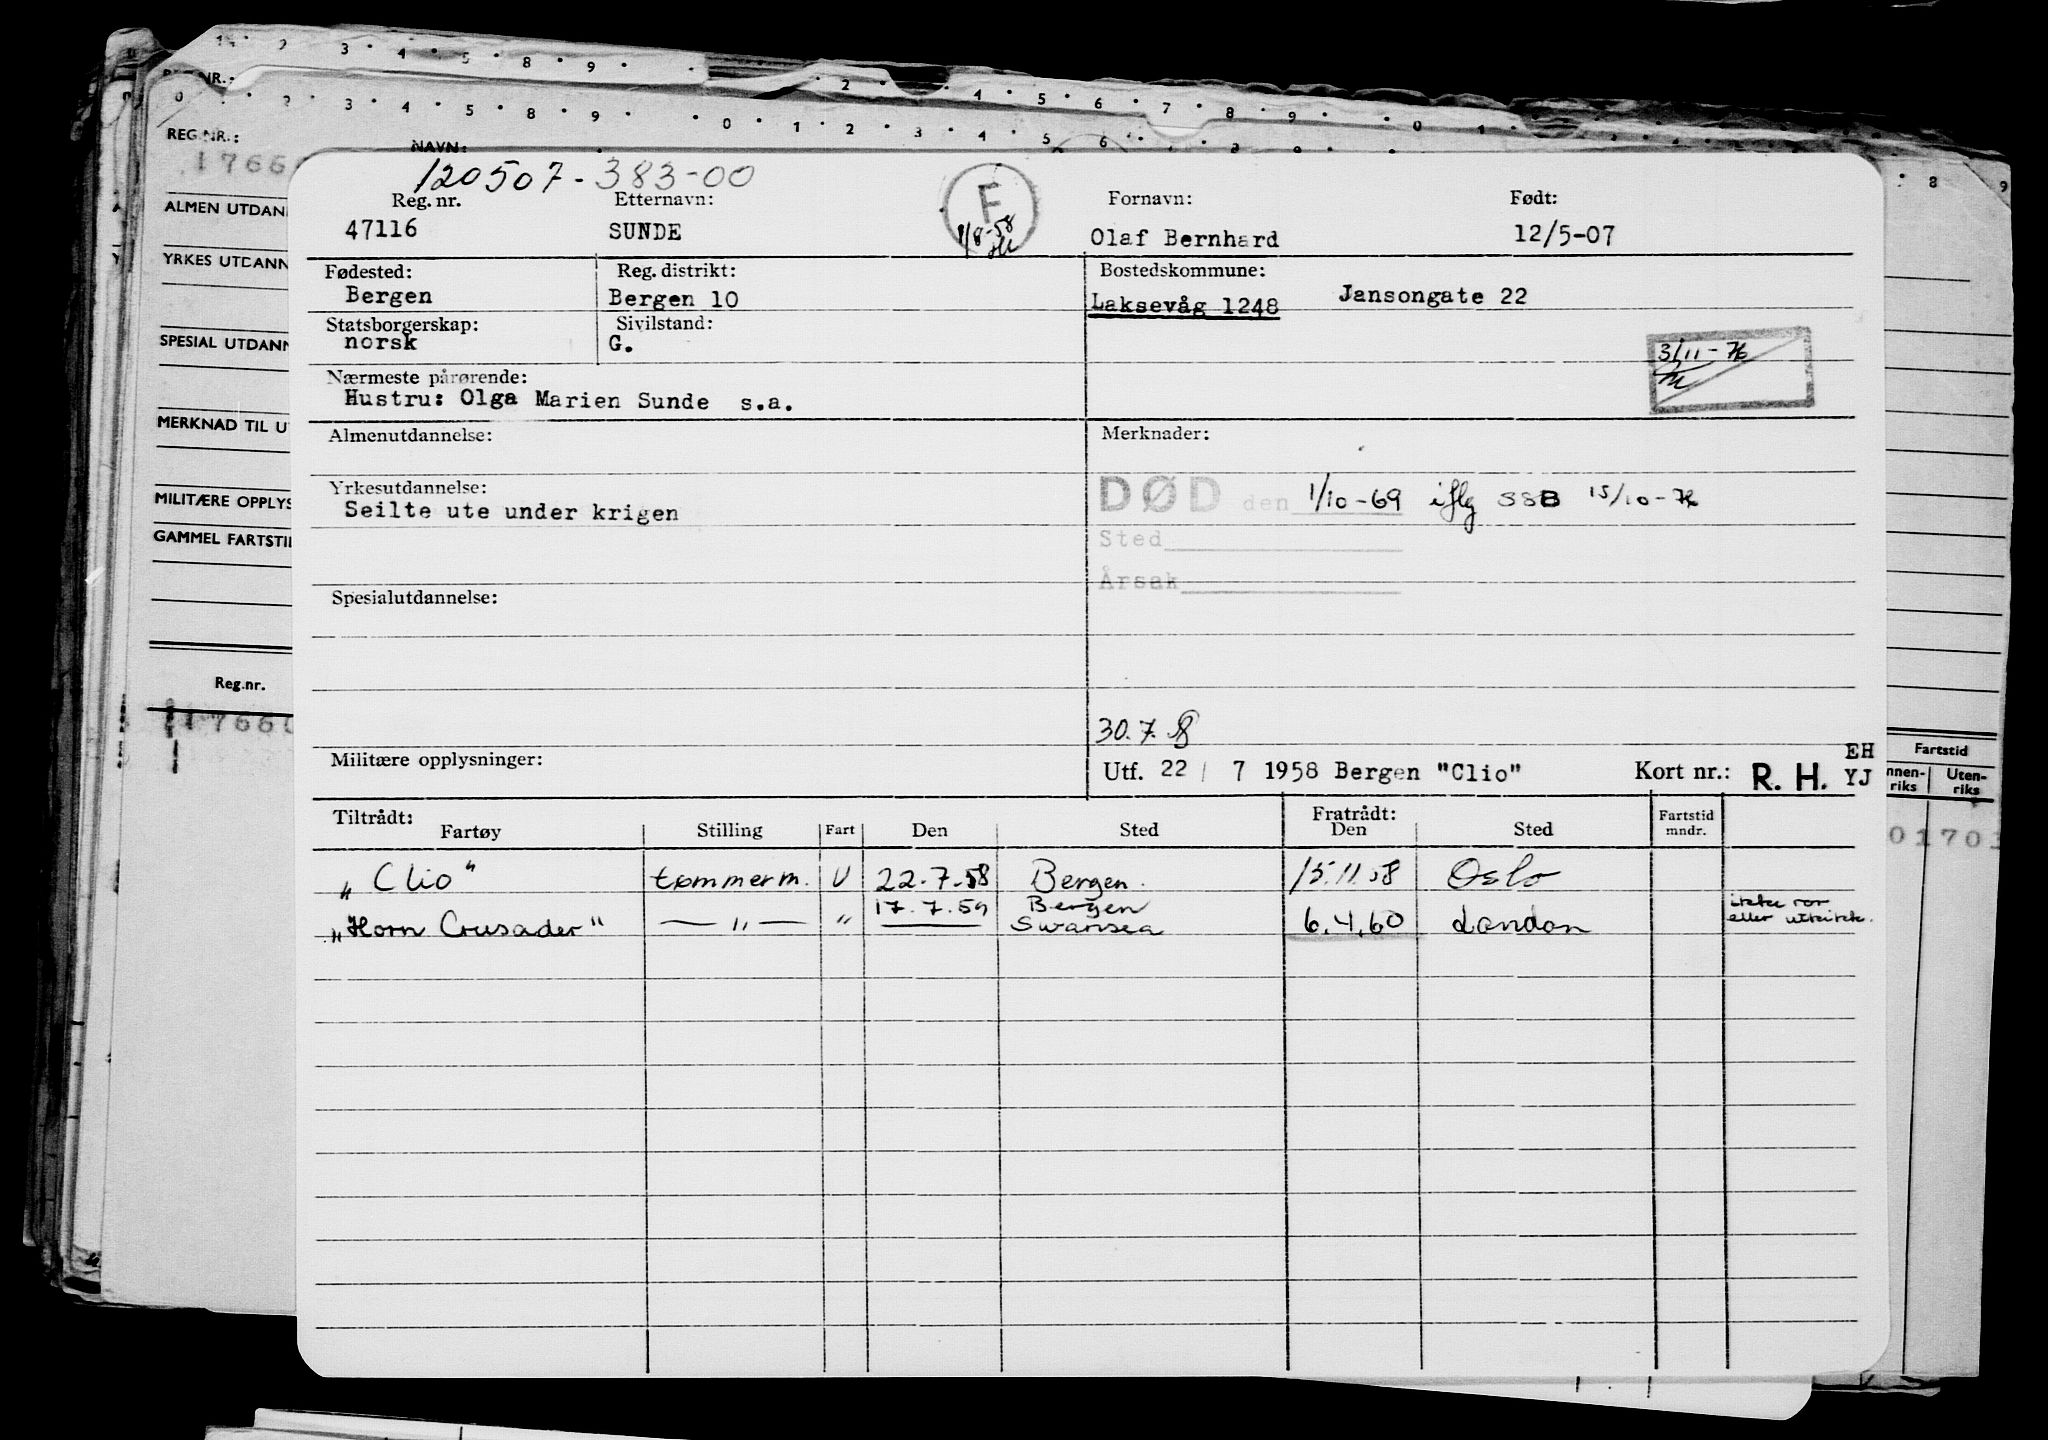 1 2 3 4 5 8 9
REG.NR.:
0 2 3 4 5 8 9 0 1 2 3 4 5 6
2 4 5 6 7 8 9 0 1
8 9
REG.NR.:
NAVN:
1766
ALMEN UTDAN
YRKES UTDANN
SPESIAL UTDANN
MERKNAD TIL U
MILITÆRE OPPLYS
GAMMEL FARTSTI
Reg.nr.
1766
120507-383-00
Reg. nr. Etternavn: F Fornavn: Født:
47116 SUNDE 1/8-58 Olaf Bernhard 12/5-07
Fødested: Reg. distrikt: Bostedskommune:
Bergen Bergen 10 Laksevåg 1248 Jansongate 22
Statsborgerskap: Sivilstand:
norsk G.
3/11-76
Nærmeste pårørende:
Hustru: Olga Marien Sunde s.a.
Almenutdannelse: Merknader:
Yrkesutdannelse:
DØD den 1/10-69 iflg SSB 15/10-76
Seilte ute under krigen
Sted
Årsak
Spesialutdannelse:
30.7.58
Militære opplysninger:
Utf. 22 / 7 1958 Bergen "Clio" Kort nr.: R. H. EH
YJ
Fartstid
nnen-riks Uten-riks
01701
Tiltrådt: Fratrådt: Fartstid
Fartøy Stilling Fart Den Sted Den Sted mndr.
„Clio" tømmerm. U 22.7.58 Bergen. 15.11.58 Oslo
17.7.59 Bergen
„Horn Crusader" — " — " Swansea 6.4.60 London
eller